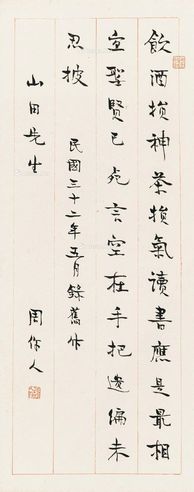 飲酒損神茶損氣讀書應是最相
宜聖賢已死言空在手把遺編未
忍披
民國三十二年五月錄舊作
山田先生
周作人